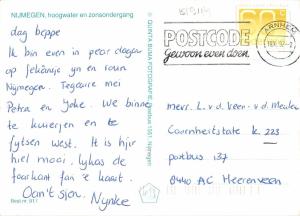 NIJMEGEN, hoogwater en zonsondergang
dag beppe
Ik bin even in peter dagen
op fekânsje yn en roun
Nijmegen. Tegearre mei
Petra en Joke. We binne
te kuierjen en te
fytsen west. It is hjir
hiel moai. lykas de
foarkant fan e kaart.
Oant sjen. Nynke
Best.nr. 911
© QUINTA BUMA FOTOGRAFIE Postbus 1051 Nijmegen
POSTCODE
Gewoon even doen.
ARNHEM
mevr. L. v.d. Veen - v.d. Meulen
Coornhertstate k. 223
postbus 137
8440 AC Heerenveen